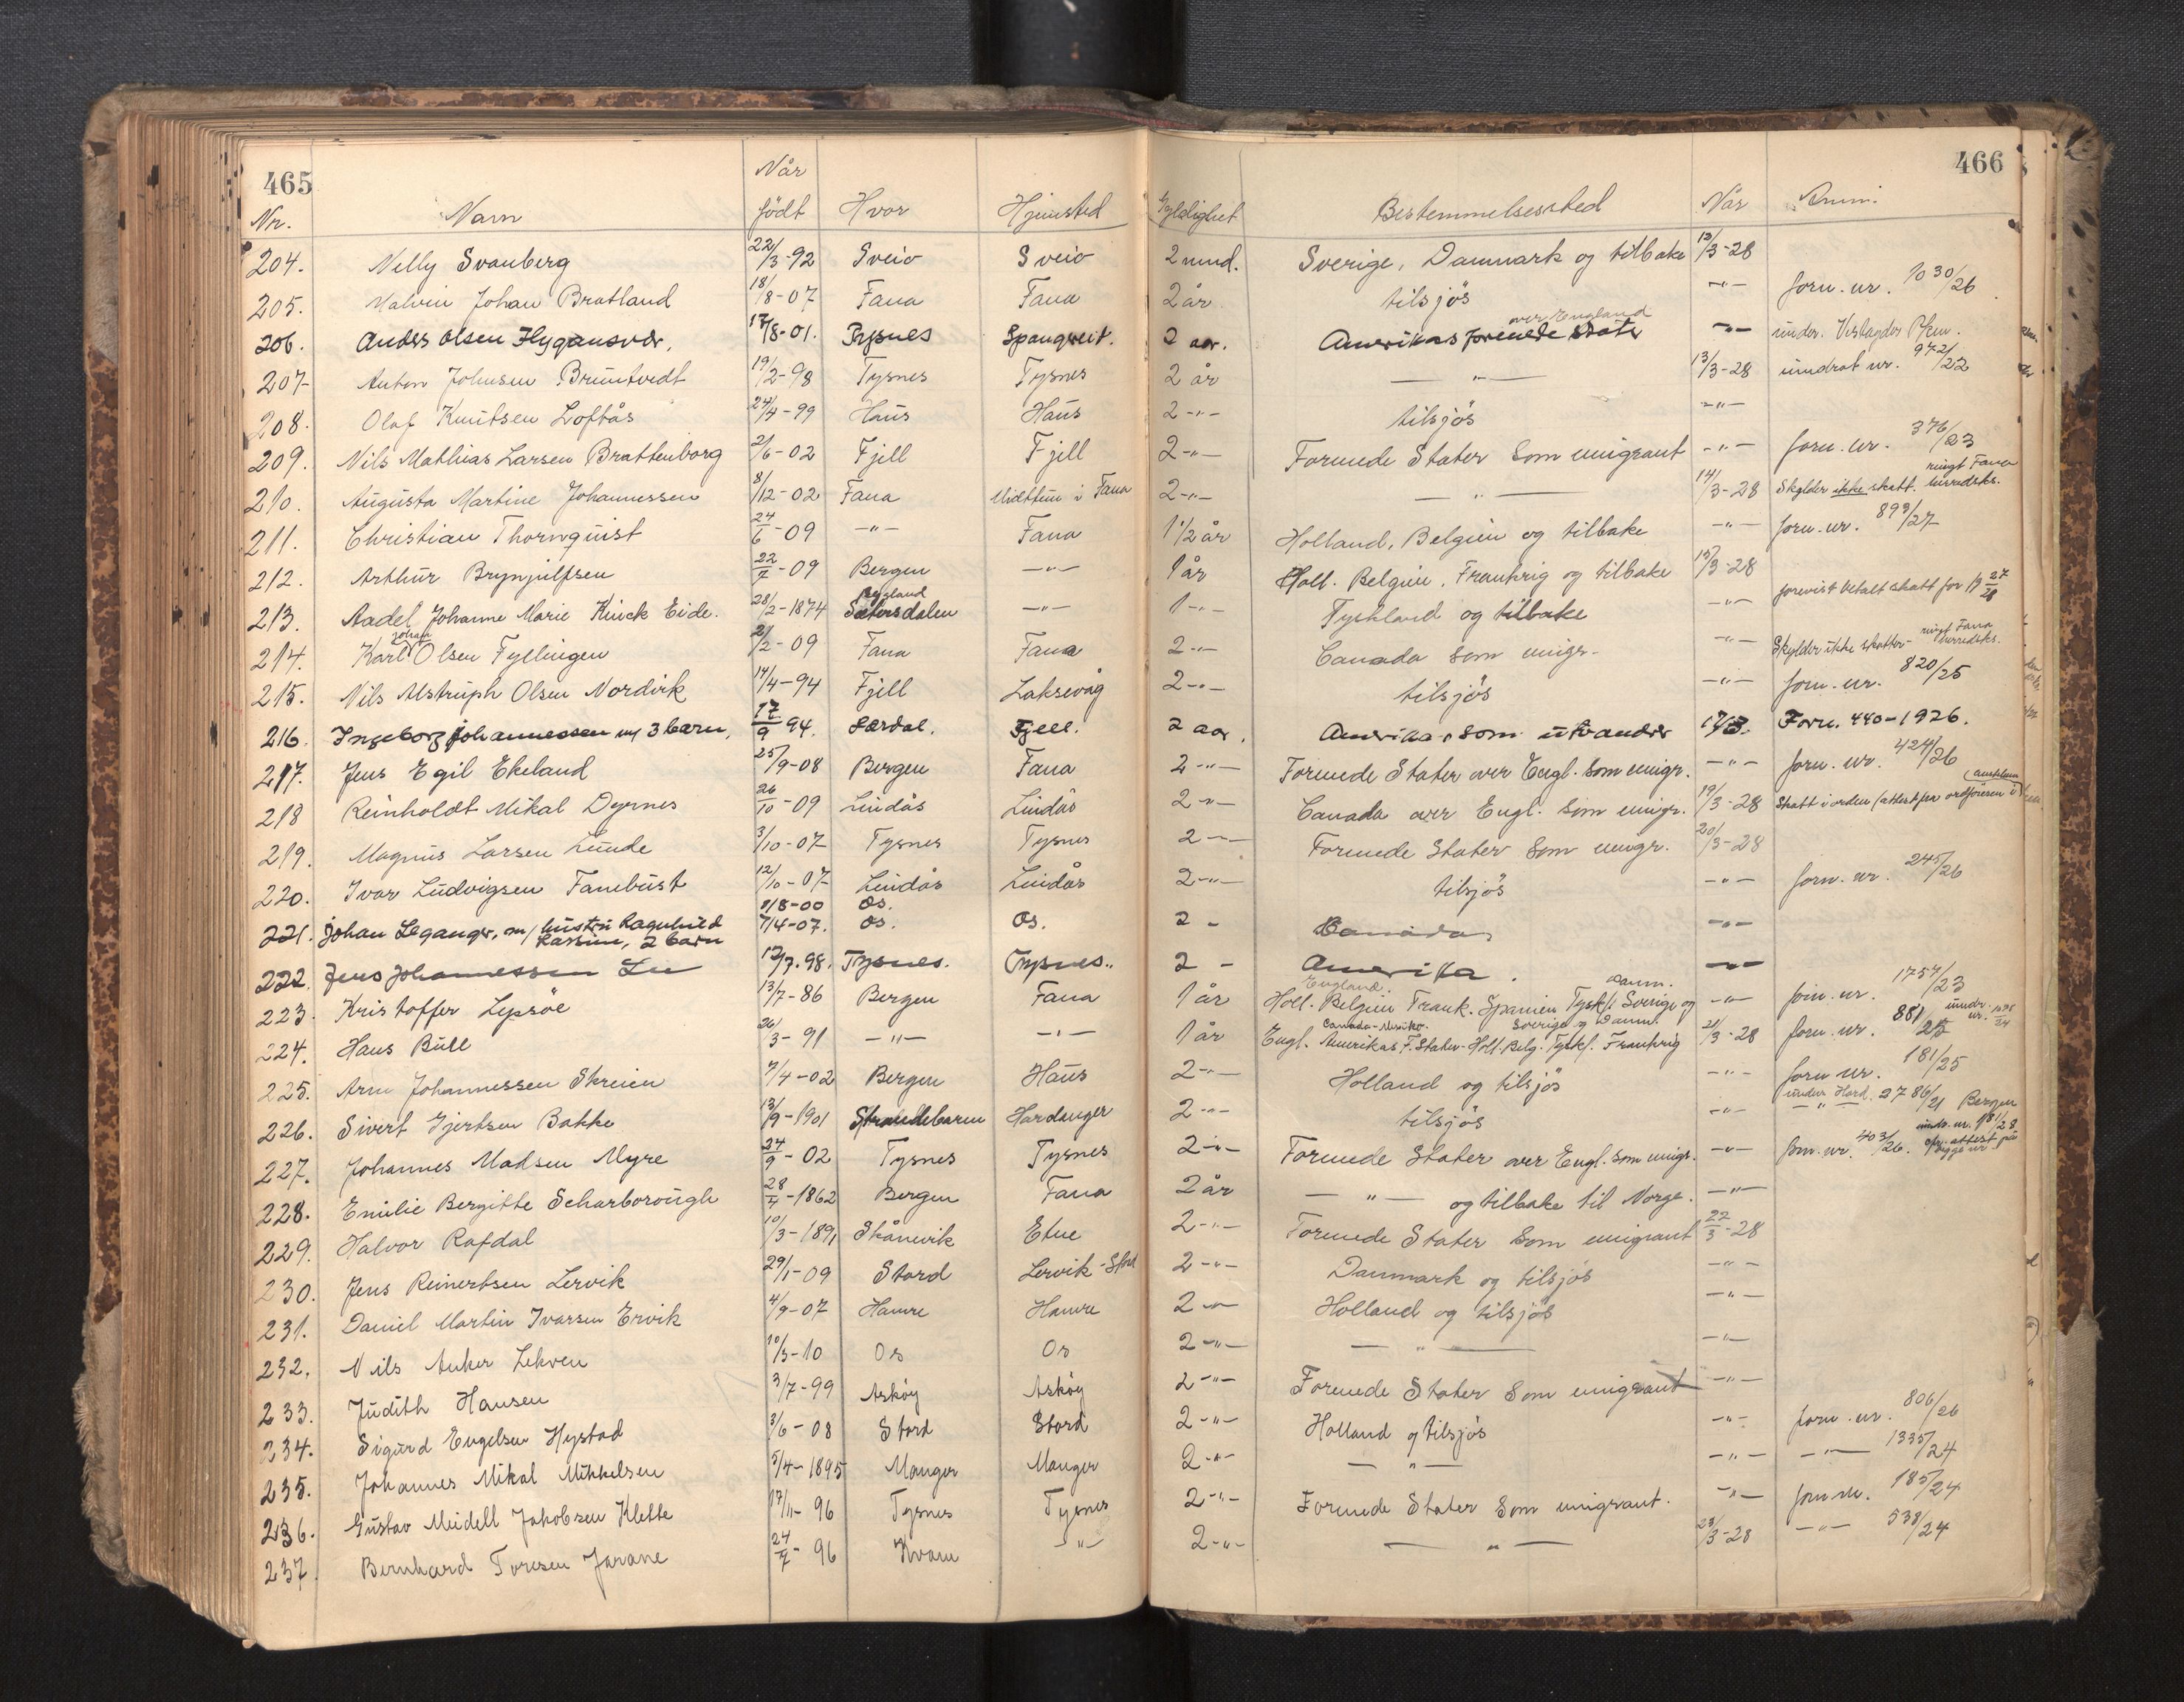 465
466
Nr. Navn Når født Hvor Hjemsted Gyldighet Bestemmelsessted Når Anm.
204. Nelly Svanberg 22/3-92 Sveio Sveio 2 mnd. Sverige, Danmark og tilbake 13/3-28
205. Malvin Johan Bratland 18/8-07 Fana Fana 2 år tilsjös -"- forn. nr. 1030/26
206. Anders Olsen Flygansvær, 17/8-01. Tysnes Spangreit. 2 aar. Amerikas forenede stater over England -"-
207- Anton Johnsen Bruntvedt 19/2-98 Tysnes Tysnes 2 år -"- 13/3-28 inndrat nr. 972/22
208. Olaf Knutsen Loftås 24/4-99 Haus Haus 2 -"- tilsjös -"-
209. Nils Mathias Larsen Brattenborg 2/6-02 Fjell Fjell 2 -"- Forenede Stater som emigrant -"- forn. nr. 376/23
210. Augusta Martine Johannessen 8/12-02 Fana Midttun i Fana 2 -"- -"- 14/3-28 Skylder ikke skatt. ringt Fana herredsks.
211. Christian Thornquist 24/6-09 -"- Fana 1 1/2 år Holland, Belgien og tilbake -"- forn. nr. 893/27
212. Arthur Brynjulfsen 22/7-09 Bergen -"- 1 år Holl. Belgien. Frankrig og tilbake 15/3-28
213. Aadel Johanne Marie Kinck Eide. 28/2-1874 Bygland Sætersdalen -"- 1 -"- Tyskland og tilbake -"- forevist betalt skatt for 19 27/28
214. Karl Johan Olsen Fyllingen 2/2-09 Fana Fana 2 -"- Canada som emigr- -"- Skylder ikke skatter- ringt Fana herredsks.
215. Nils Alstruph Olsen Nordvik 14/4-94 Fjell Laksevåg 2 -"- tilsjös -"- forn. nr. 820/25
216. Ingeborg Johannessen m/ 3 barn, 17/9 94. Lærdal. Fjell. 2 aar, Amerika, som utvandrer 17/3. Forn. 440-1926.
217. Jens Egil Ekeland 25/9-08 Bergen Fana 2 -"- Forenede Stater over Engl. som emigr. -"- forn. nr. 424/26
218 Reinholdt Mikal Dyrnes 26/10-09 Lindås Lindås 2 -"- Canada over Engl. som emigr. 19/3-28 Skatt i orden (attest fra ordföreren i
219. Magnus Larsen Lunde 3/10-07 Tysnes Tysnes 2 -"- Forenede Stater som emigr. 20/3-28
220. Ivar Ludvigsen Fanebust 12/10-07 Lindås Lindås 2 -"- tilsjös -"- forn. nr. 245/26
221. Johan Leganger, m/ hustru Ragnhild Kassine, 2 barn 9/8-00 Os. 7/4-07. Os. Os. 2 - Canada, -"-
222. Jens Johannessen Lie 12/7.98. Tysnes. Tysnes.. 2 - Amerika. -"-
223. Kristoffer Lepsöe 13/7-86 Bergen Fana 1 år England. Holl. Belgien Frank. Spanien Tyskl. Sverige og Danm. -"- forn. nr. 1757/23
224. Hans Bull 26/3-91 -"- -"- 1 år Engl. Canada-Mexiko. Amerikas F. Stater-Holl. Belg. Tyskl. Frankrig Sverige og Danm. 21/3-28 forn. nr. 881/25
225. Arne Johannessen Skreien 7/4-02 Bergen Haus 2 -"- Holland og tilsjös -"- forn nr. 181/25
226. Sivert Gjertsen Bakke 13/9-1901 Strandebarm Hardanger 2 -"- tilsjös -"- under Hord. 2786/21 Bergen
227. Johannes Madsen Myre 24/9-02 Tysnes Tysnes 2 -"- Forenede Stater over Engl. som emigr. -"- forn. nr. 403/26.
228. Emilie Bergitte Scharborough 28/4-1862 Bergen Fana 2 år -"- og tilbake til Norge. -"-
229. Halvor Rafdal 10/3-1891 Skånevik Etne 2 -"- Forenede Stater som emigrant 22/3-28
230. Jens Reinertsen Lervik 29/1-09 Stord Lervik-Stord 2 -"- Danmark og tilsjös -"-
231. Daniel Martin Ivarsen Ervik 4/9-07 Hamre Hamre 2 -"- Holland og tilsjös -"-
232. Nils Anker Lekven 10/3-10 Os Os 2 -"- -"- -"-
233. Judith Hansen 3/7-99 Asköy Asköy 2 -"- Forenede Stater som emigrant -"-
234. Sigurd Engelsen Hystad 3/6-08 Stord Stord 2 -"- Holland og tilsjös -"- forn. nr. 806/26
235. Johannes Mikal Mikkelsen 5/4-1895 Manger Manger 2 -"- -"- -"- -"- 1335/24
236. Gustav Meidell Jakobsen Klette 17/11-96 Tysnes Tysnes 2 -"- Forenede Stater som emigrant. -"- forn nr. 185/24
237. Bernhard Toresen Jarane 24/7-96 Kvam -"- 2 -"- -"- 23/3-28 -"- 538/24